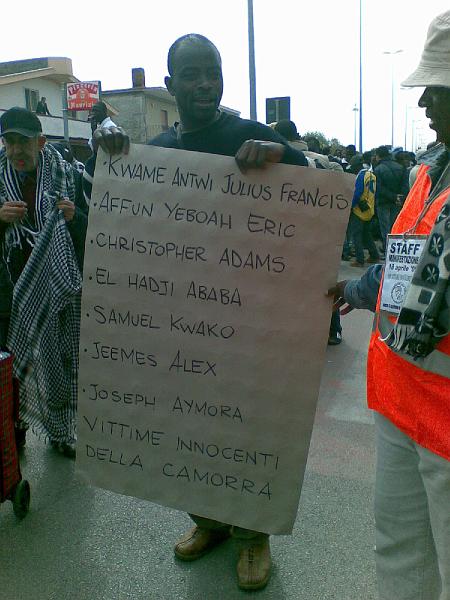 Pizzeria
Maurizio
• KWAME ANTWI JULIUS FRANCIS
• AFFUN YEBOAH ERIC
• CHRISTOPHER ADAMS
• EL HADJI ABABA
• SAMUEL KWAKO
• JEEMES ALEX
• JOSEPH AYMORA
VITTIME INNOCENTI
DELLA CAMORRA
STAFF
MANIFESTAZIONE
18 aprile